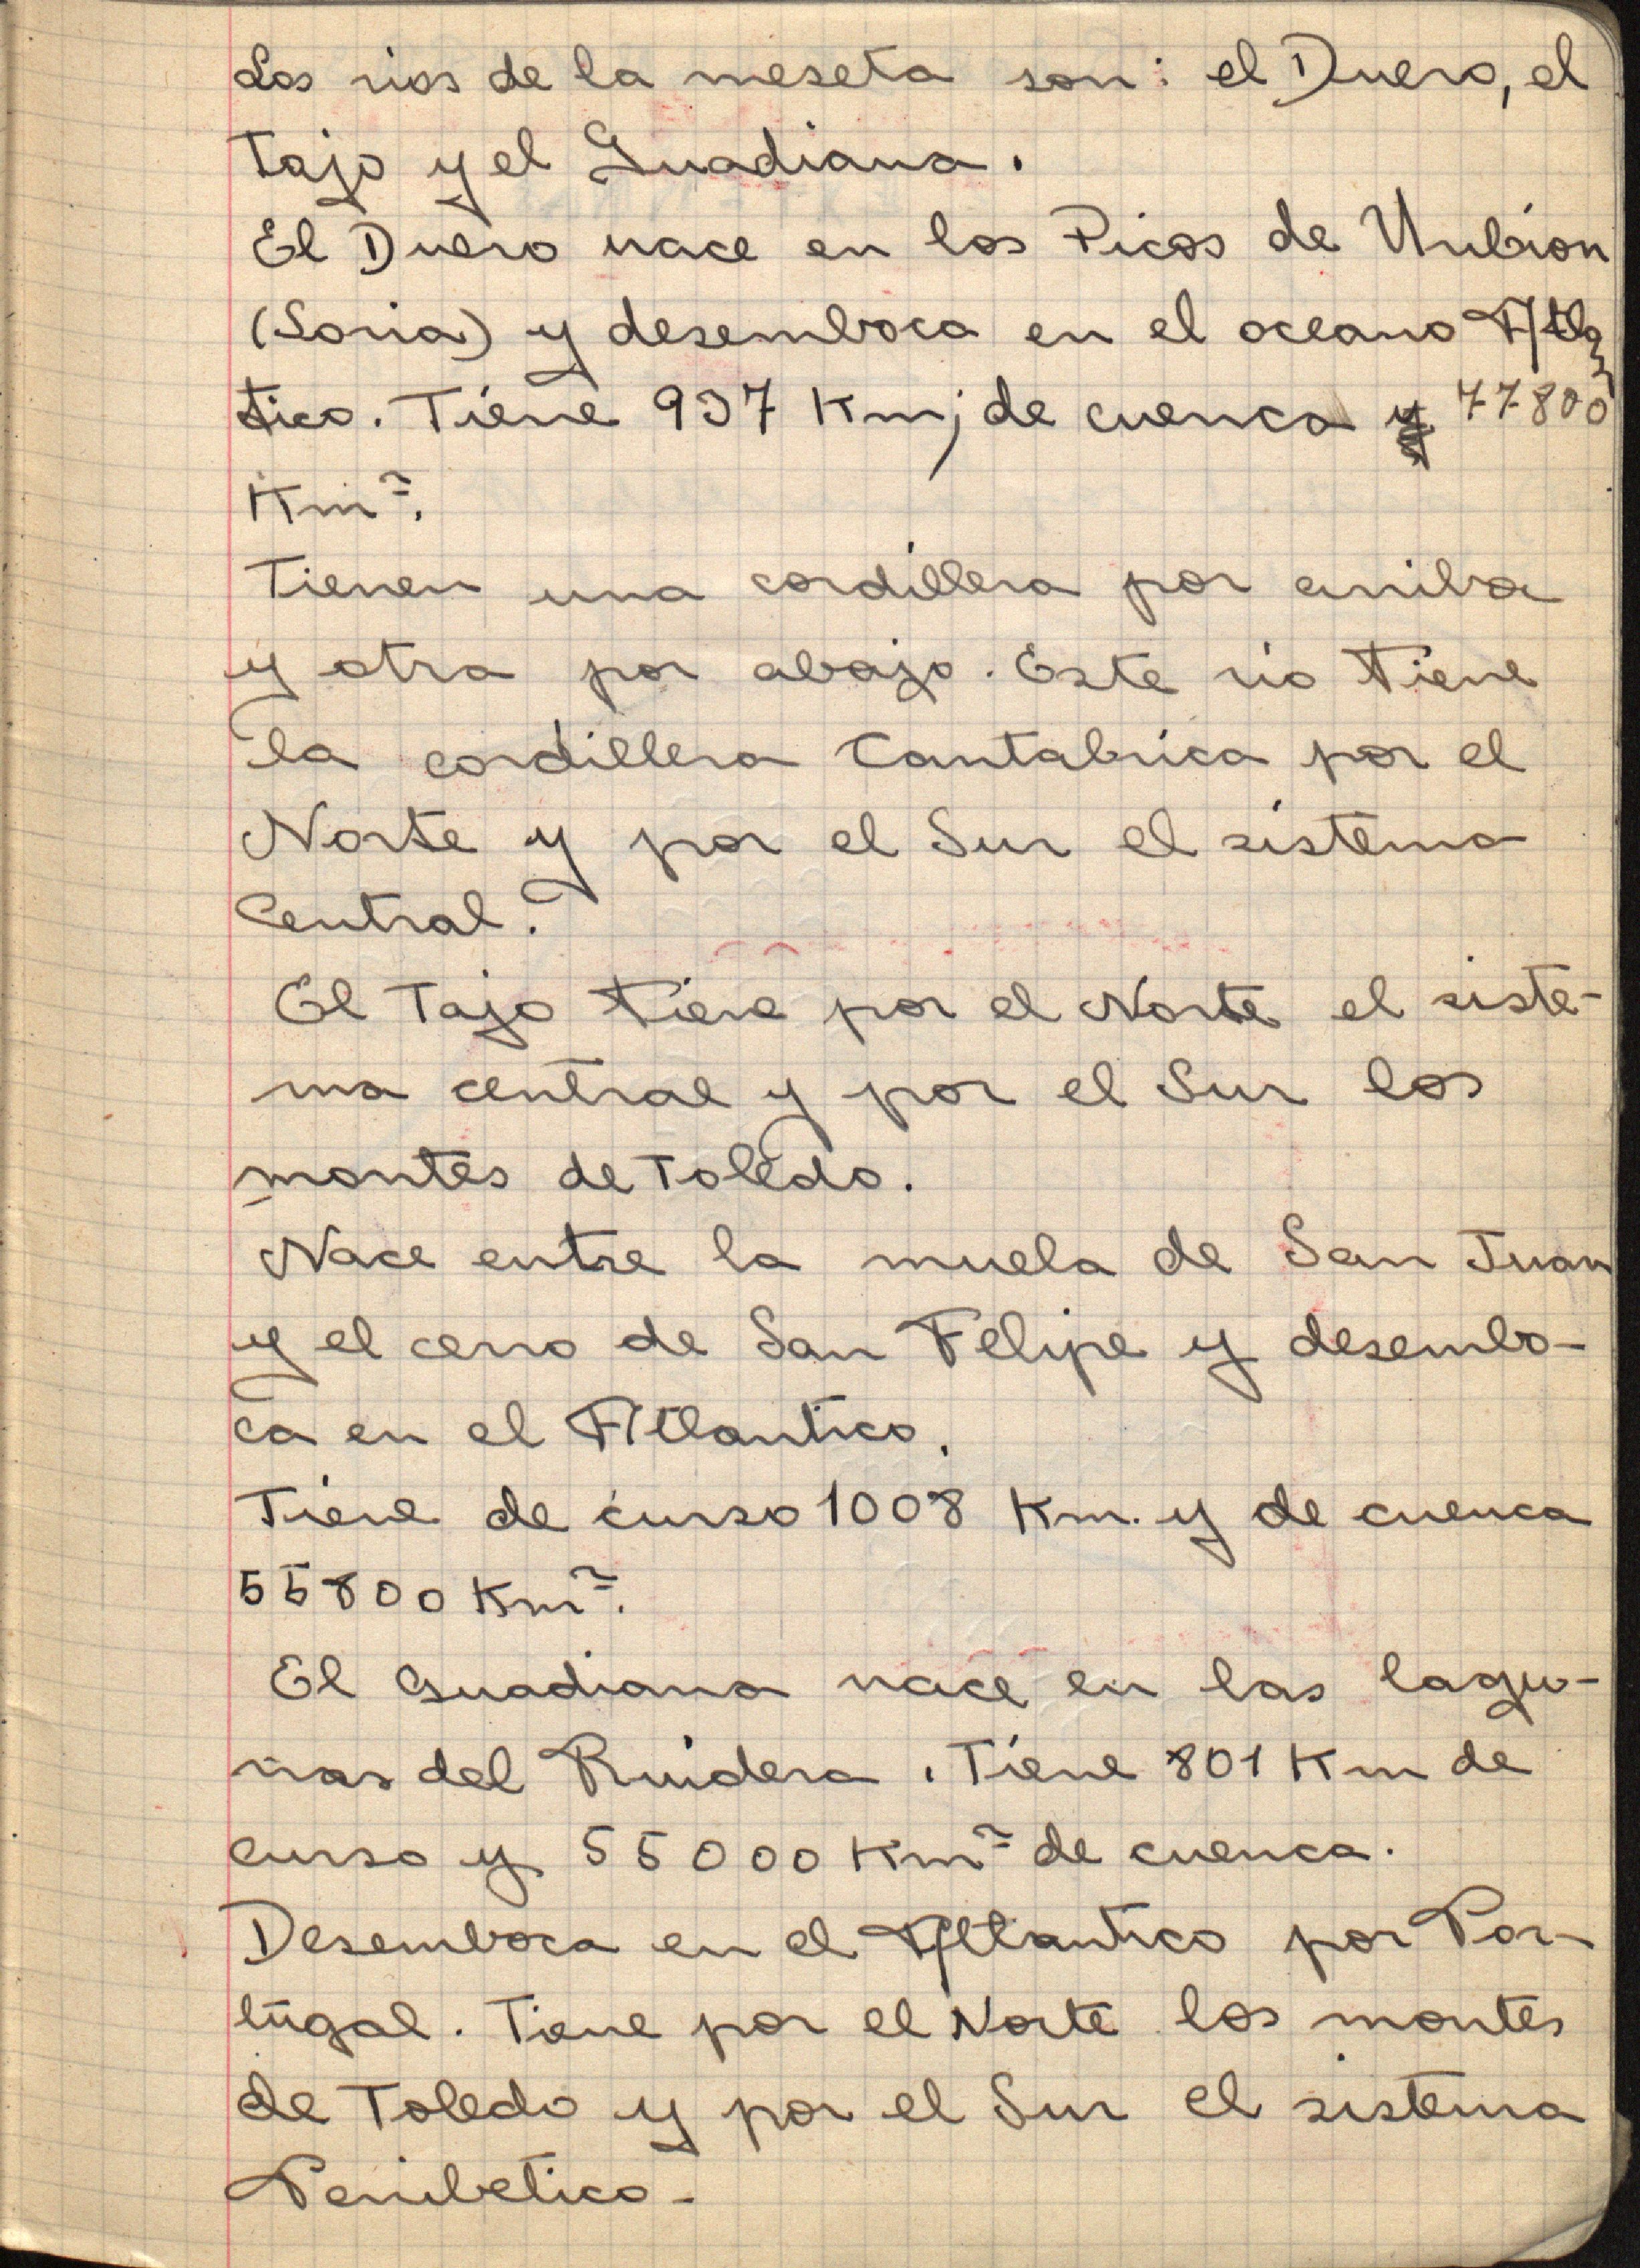 Los rios de la meseta son: el Duero, el
Tajo y el Guadiana.
El Duero nace en los Picos de Urbion
(Soria) y desemboca en el oceano Atlan
tico. Tiene 937 Km; de cuenca 77800
Km².
Tienen una cordillera por arriba
y otra por abajo. Este rio tiene
la cordillera Cantabrica por el
Norte y por el Sur el sistema
Central.
El Tajo tiene por el Norte el siste-
ma central y por el Sur los
montes de Toledo.
Nace entre la muela de San Juan
y el cerro de San Felipe y desembo-
ca en el Atlantico.
Tiene de curso 1008 Km. y de cuenca
55800 Km².
El Guadiana nace en las lagu-
nas del Ruidera. Tiene 801 Km de
curso y 55000 Km² de cuenca.
Desemboca en el Atlantico por Por-
tugal. Tiene por el Norte los montes
de Toledo y por el Sur el sistema
Penibetico-